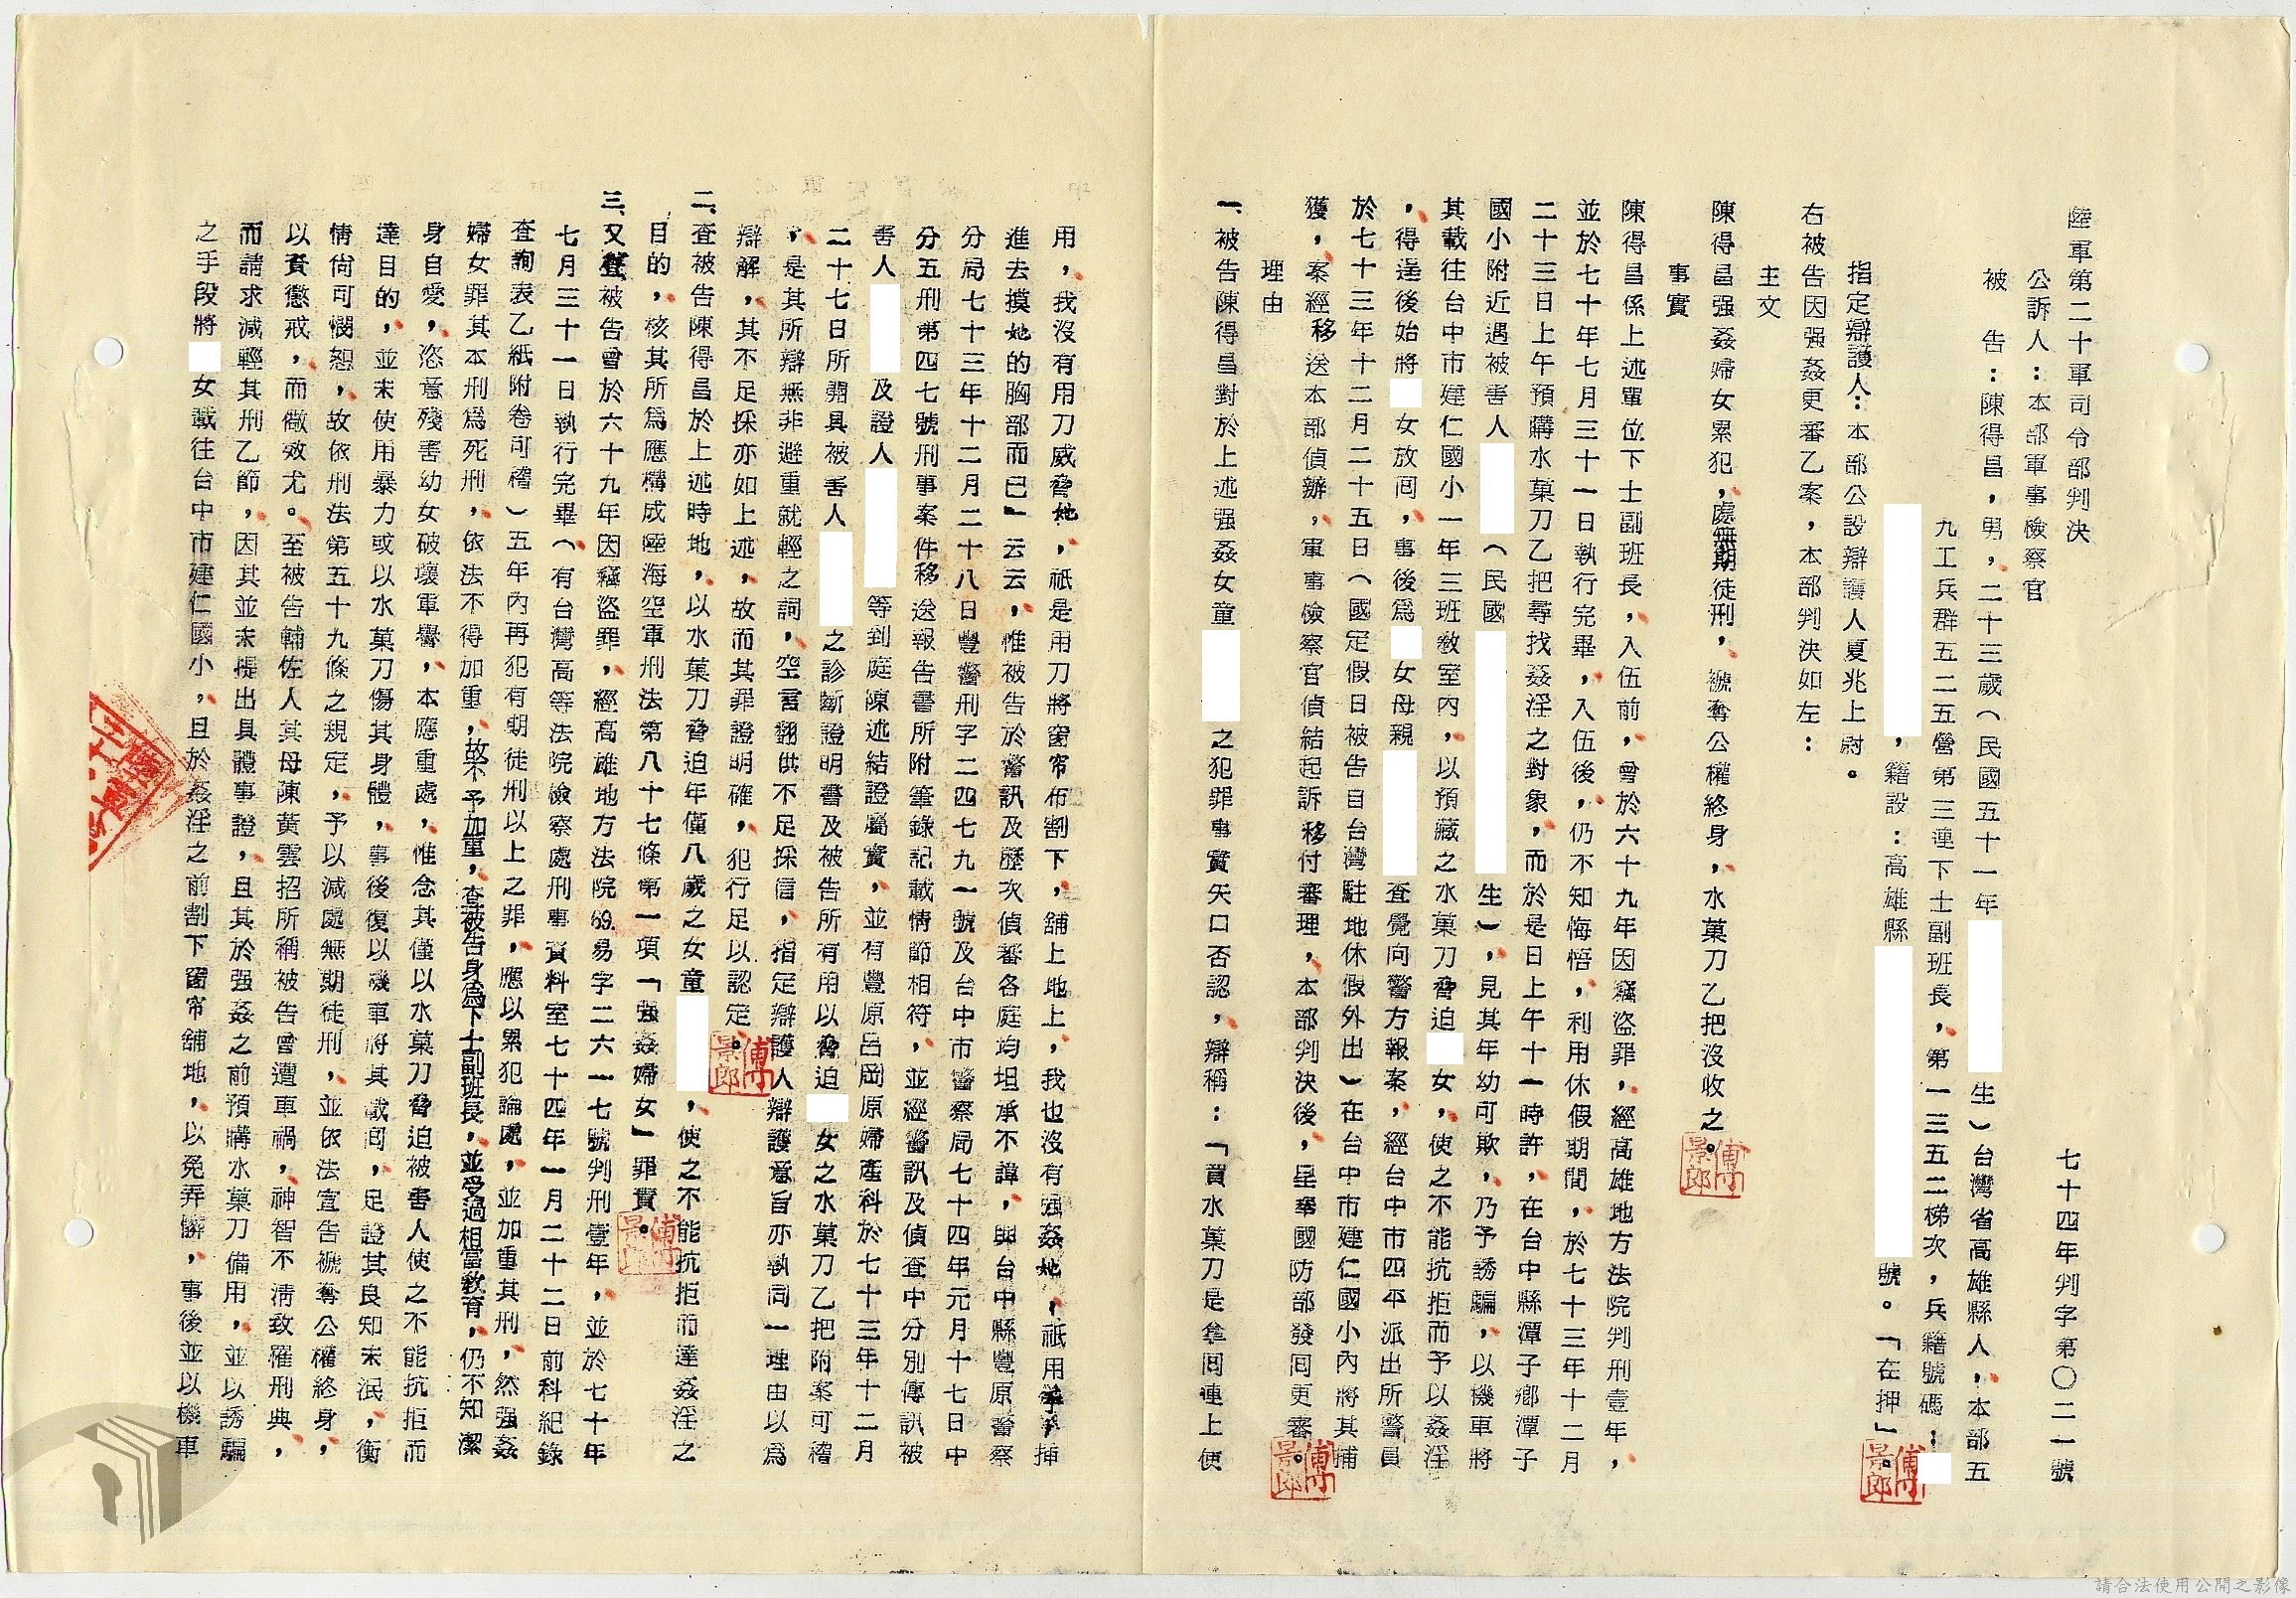 陸軍第二十軍司令部判決
七十四年判字第〇二一號
公訴人：本部軍事檢察官
被　告：陳得昌，男，二十三歲（民國五十一年
生）台灣省高雄縣人，本部五
九工兵群五二五營第三連下士副班長，第一三五二梯次，兵籍號碼：
，籍設：高雄縣
號。「在押」。
指定辯護人：本部公設辯護人夏兆上尉。
右被告因强姦更審乙案，本部判決如左：
主文
陳得昌强姦婦女累犯，處無期徒刑，褫奪公權終身，水菓刀乙把沒收之。
事實
陳得昌係上述單位下士副班長，入伍前，曾於六十九年因竊盜罪，經高雄地方法院判刑壹年，
並於七十年七月三十一日執行完畢，入伍後，仍不知悔悟，利用休假期間，於七十三年十二月
二十三日上午預購水菓刀乙把尋找姦淫之對象，而於是日上午十一時許，在台中縣潭子鄉潭子
國小附近遇被害人
（民國
生），見其年幼可欺，乃予誘騙，以機車將
其載往台中市建仁國小一年三班教室內，以預藏之水菓刀脅迫
女，使之不能抗拒而予以姦淫
，得逞後始將
女放回，事後爲
女母親
查覺向警方報案，經台中市四平派出所警員
於七十三年十二月二十五日（國定假日被告自台灣駐地休假外出）在台中市建仁國小內將其捕
獲，案經移送本部偵辦，軍事檢察官偵結起訴移付審理，本部判決後，呈奉國防部發回更審。
理由
一、被告陳得昌對於上述强姦女童
之犯罪事實矢口否認，辯稱：「買水菓刀是拿回連上使
用，我沒有用刀威脅她，祇是用刀將窗帘布割下，舖上地上，我也沒有强姦她，祇用手挿
進去摸她的胸部而已」云云，惟被告於警訊及歷次偵審各庭均坦承不諱，與台中縣豐原警察
分局七十三年十二月二十八日豐警刑字二四七九一號及台中市警察局七十四年元月十七日中
分五刑第四七號刑事案件移送報告書所附筆錄記載情節相符，並經警訊及偵查中分別傳訊被
害人
及證人
等到庭陳述結證屬實，並有豐原呂岡原婦產科於七十三年十二月
二十七日所開具被害人
之診斷證明書及被告所有用以脅迫
女之水菓刀乙把附案可稽
，是其所辯無非避重就輕之詞，空言翻供不足採信，指定辯護人辯護意旨亦執同一理由以爲
辯解，其不足採亦如上述，故而其罪證明確，犯行足以認定。
二、查被告陳得昌於上述時地，以水菓刀脅迫年僅八歲之女童
，使之不能抗拒而達姦淫之
目的，核其所爲應構成陸海空軍刑法第八十七條第一項「强姦婦女」罪責。
三、又查被告曾於六十九年因竊盜罪，經高雄地方法院69.易字二六一七號判刑壹年，並於七十年
七月三十一日執行完畢（有台灣高等法院檢察處刑事資料室七十四年一月二十二日前科紀錄
查詢表乙紙附卷可稽）五年內再犯有期徒刑以上之罪，應以累犯論處，並加重其刑，然强姦
婦女罪其本刑爲死刑，依法不得加重，故不予加重，查被告身爲下士副班長，並受過相當教育，仍不知潔
身自愛，恣意殘害幼女破壞軍譽，本應重處，惟念其僅以水菓刀脅迫被害人使之不能抗拒而
達目的，並未使用暴力或以水菓刀傷其身體，事後復以機車將其載回，足證其良知未泯，衡
情尚可憫恕，故依刑法第五十九條之規定，予以減處無期徒刑，並依法宣告褫奪公權終身，
以資懲戒，而儆效尤。至被告輔佐人其母陳黃雲招所稱被告曾遭車禍，神智不清致罹刑典，
而請求減輕其刑乙節，因其並未提出具體事證，且其於强姦之前預購水菓刀備用，並以誘騙
之手段將
女載往台中市建仁國小，且於姦淫之前割下窗帘舖地，以免弄髒，事後並以機車
傅景郎
傅景郎
傅景郎
傅景郎
傅景郎
請合法使用公開之影像